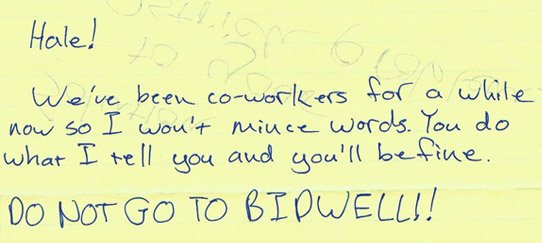 Hale!
We've been co-workers for a while
now so I won't mince words. You do
what I tell you and you'll be fine.
DO NOT GO TO BIDWELL!!